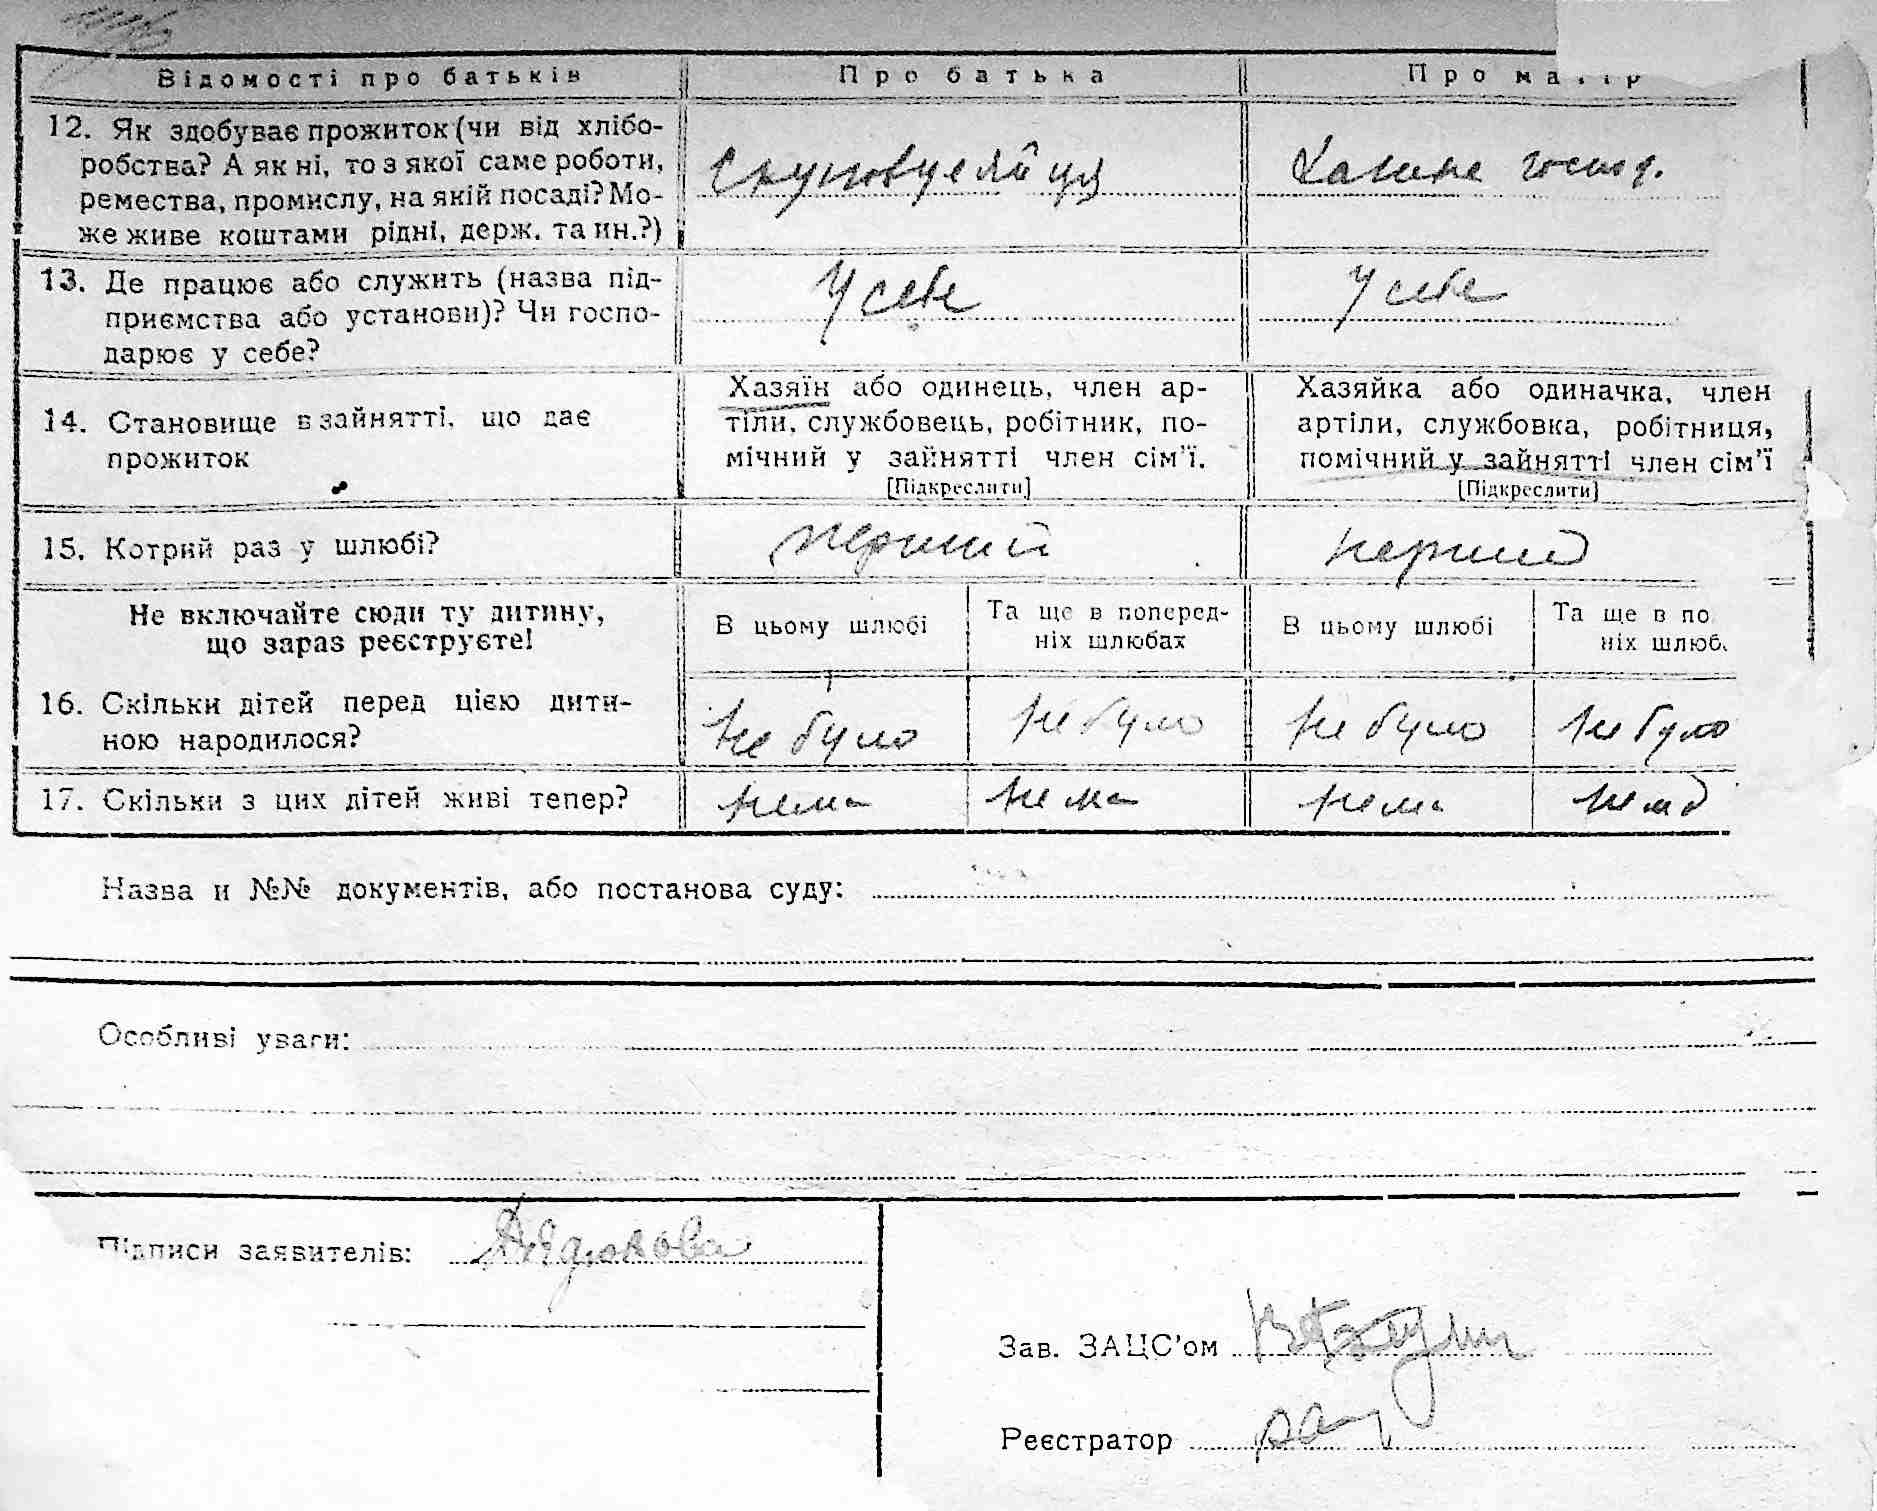 Відомості про батьків
Про батька
Про матір
12. Як здобуває прожиток (чи від хлібо-
робства? А як ні, то з якої саме роботи,
ремества, промислу, на якій посаді? Мо-
же живе коштами рідні, держ. та ин.?)
Хатнє госпор.
13. Де працює або служить (назва під-
приємства або установи)? Чи госпо-
дарює у себе?
У себе
У себе
14. Становище в зайнятті, що дає
прожиток
Хазяїн або одинець, член ар-
тіли, службовець, робітник, по-
мічний у зайнятті член сім'ї.
[Підкреслити]
Хазяйка або одиначка, член
артіли, службовка, робітниця,
помічний у зайнятті член сім'ї
[Підкреслити]
15. Котрий раз у шлюбі?
перший
перший
Не включайте сюди ту дитину,
що зараз реєструєте!
В цьому шлюбі
Та ще в поперед-
ніх шлюбах
В цьому шлюбі
Та ще в по
ніх шлюб
16. Скільки дітей перед цією дити-
ною народилося?
не було
не було
не було
не було
17. Скільки з цих дітей живі тепер?
нема
нема
нема
нема
Назва и №№ документів, або постанова суду:
Особливі уваги:
Підписи заявителів:
Зав. ЗАЦС'ом
Реєстратор